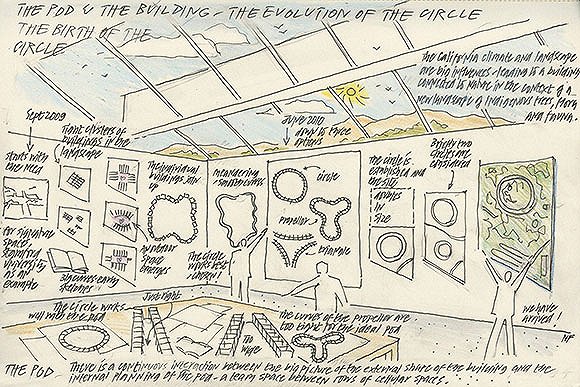 THE POD & THE BUILDING - THE EVOLUTION OF THE CIRCLE
THE BIRTH OF THE
CIRCLE
The California climate and landscape
are big influences leading to a building
connected to nature in the context of a
new landscape of indigenous trees, flora
and fauna.
Sept 2009
Tight clusters of
buildings in the
landscape
starts with
the need
for signature
space,
Stanford
University
as an
example
Discuss early
schemes
The individual
buildings link
up
an outdoor
space
emerges
meandering
The circle
works best
June 2010
circle
propellor
The circle is
established and
the site
doubles
in
size
Briefly two
circles are
considered
we have
arrived!
NF
The circle works
well with the pod
Just right
Too
wide
the curves of the propellor are
too tight for the ideal pod
THE POD - There is a continuous interaction between the big picture of the external shape of the building and the
internal planning of the pod - a team space between rows of cellular spaces.